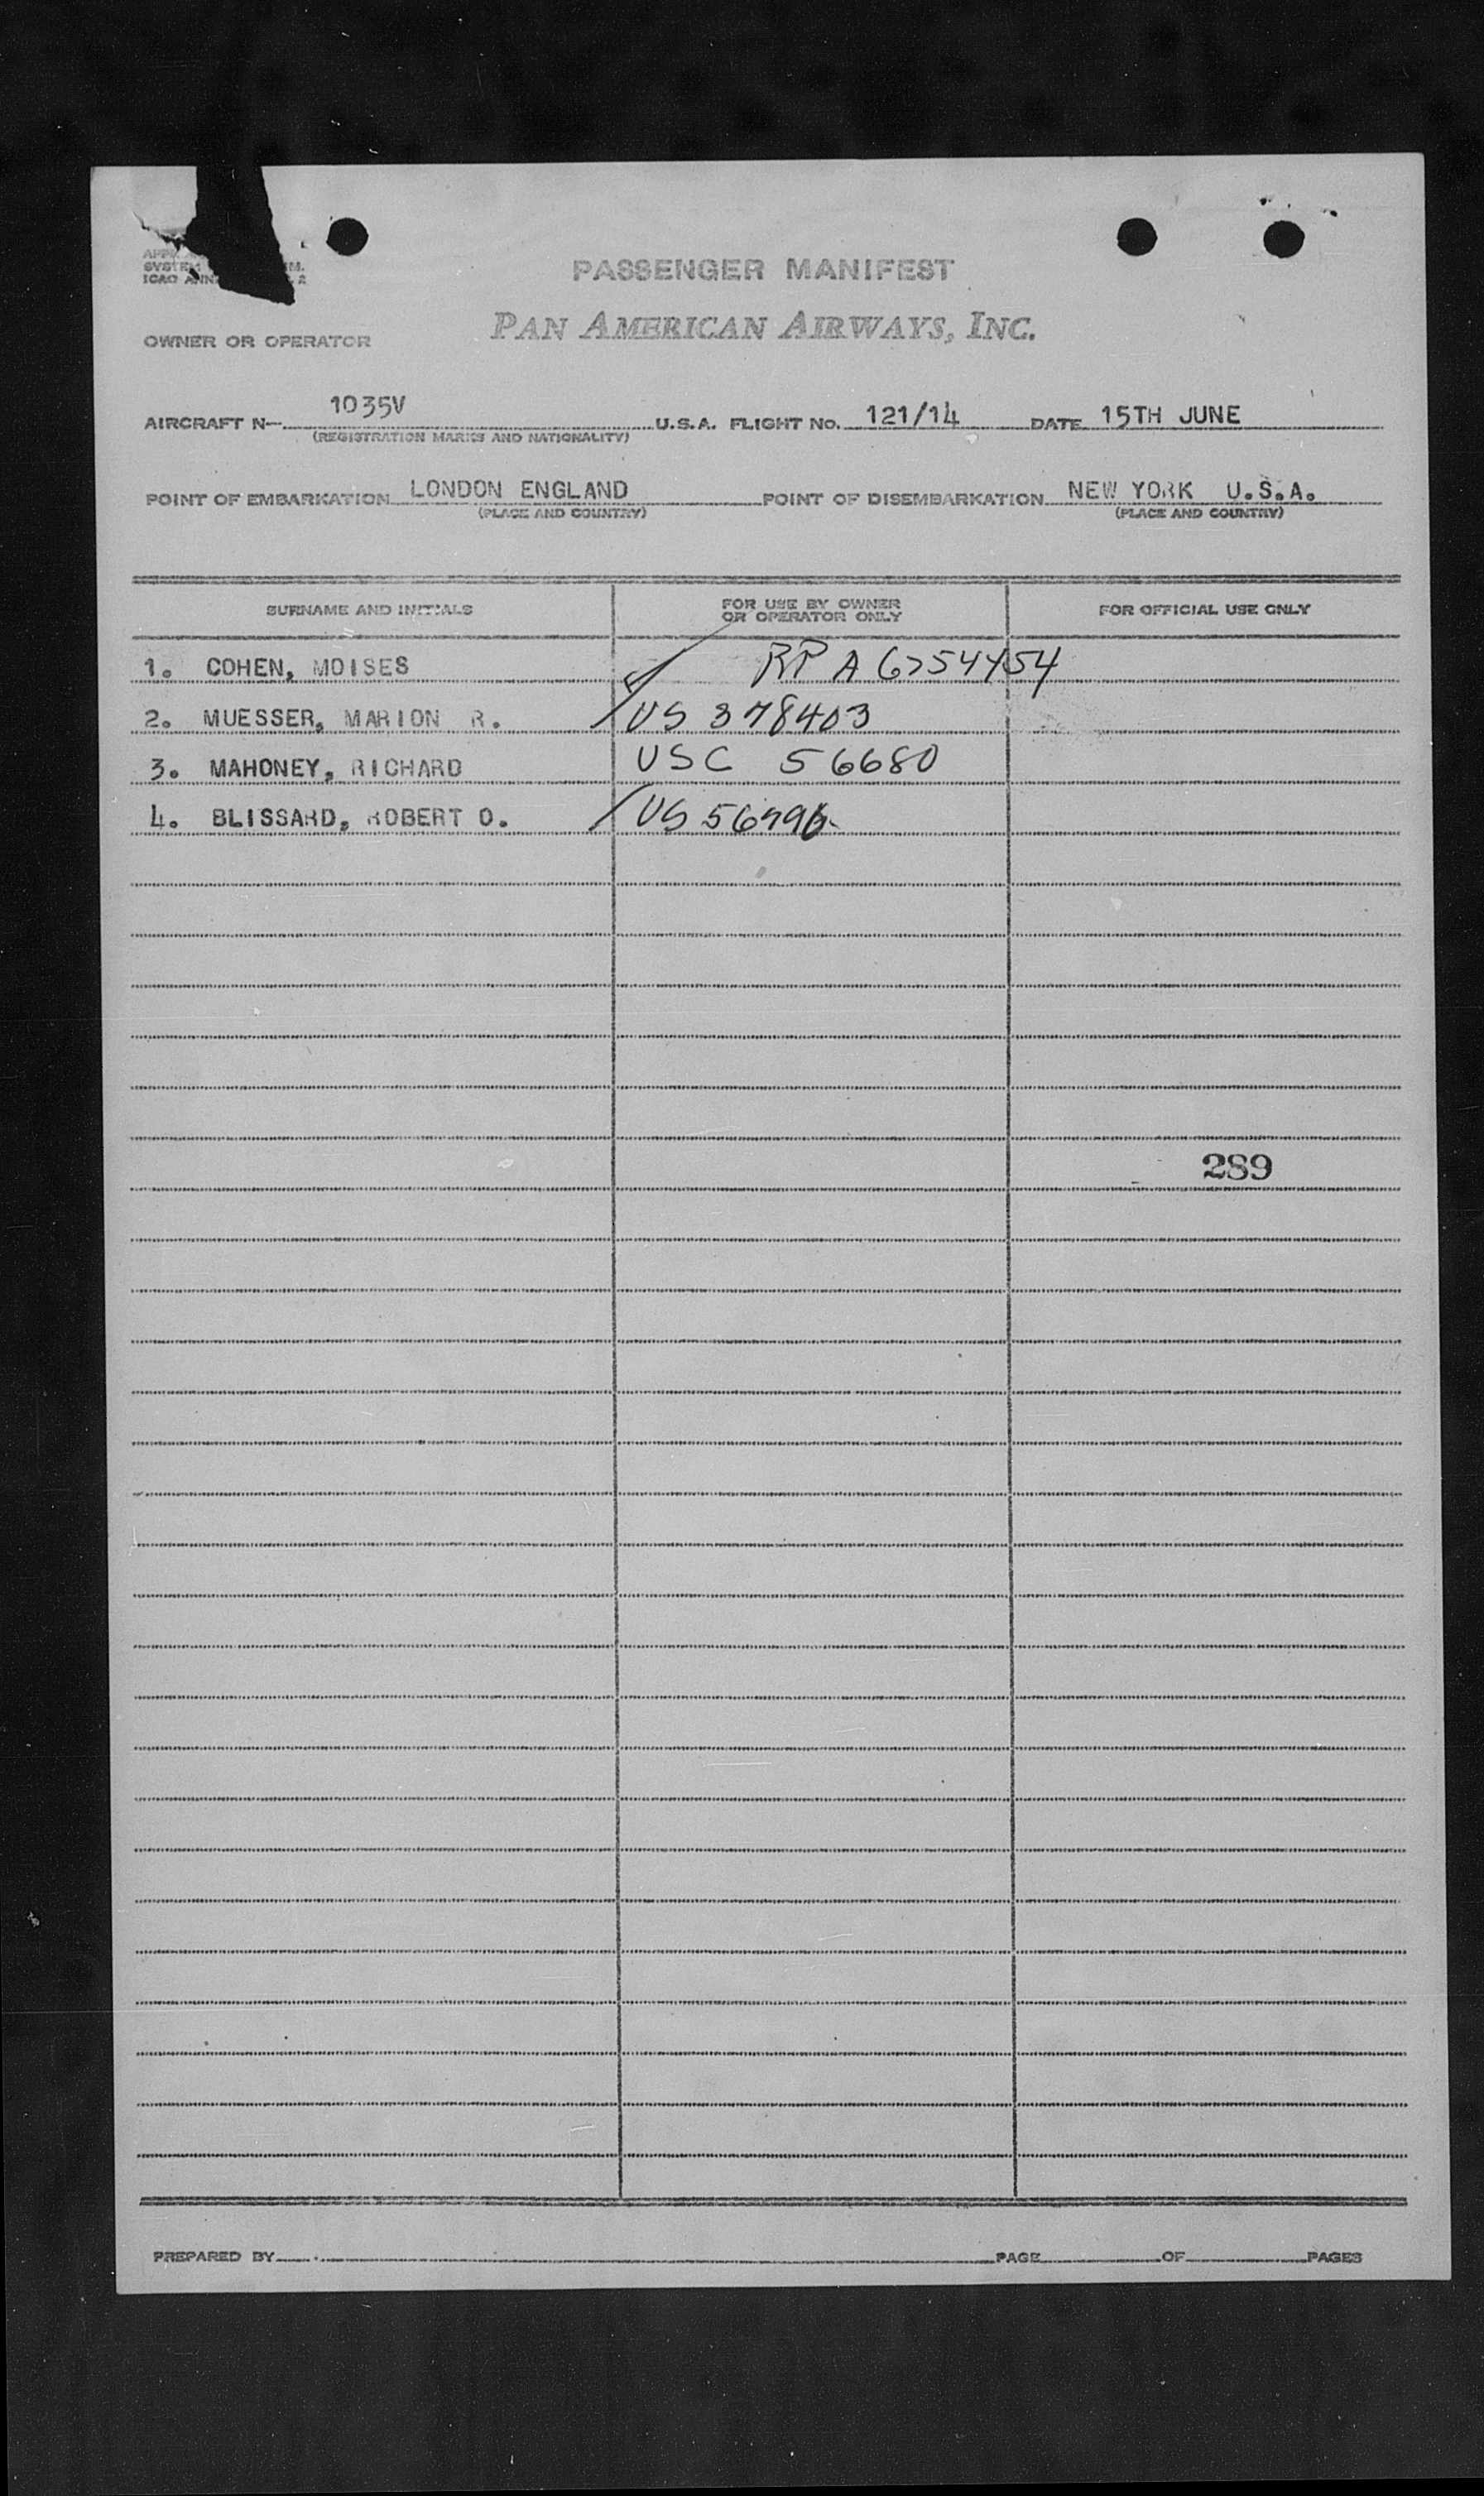 SYSTEM
PASSENGER MANIFEST
PAN AMERICAN AIRWAYS, INC.
OWNER OR OPERATOR
AIRCRAFT N- 1035V U.S.A. FLIGHT NO. 121/14 DATE 15TH JUNE
(REGISTRATION MARKS AND NATIONALITY)
POINT OF EMBARKATION LONDON ENGLAND POINT OF DISEMBARKATION NEW YORK U.S.A.
(PLACE AND COUNTRY) (PLACE AND COUNTRY)
SURNAME AND INITIALS FOR USE BY OWNER OR OPERATOR ONLY FOR OFFICIAL USE ONLY
1. COHEN, MOISES RP A 6754454
2. MUESSER, MARION R. US 378403
3. MAHONEY, RICHARD USC 56680
4. BLISSARD, ROBERT O. US
289
PREPARED BY PAGE OF PAGES